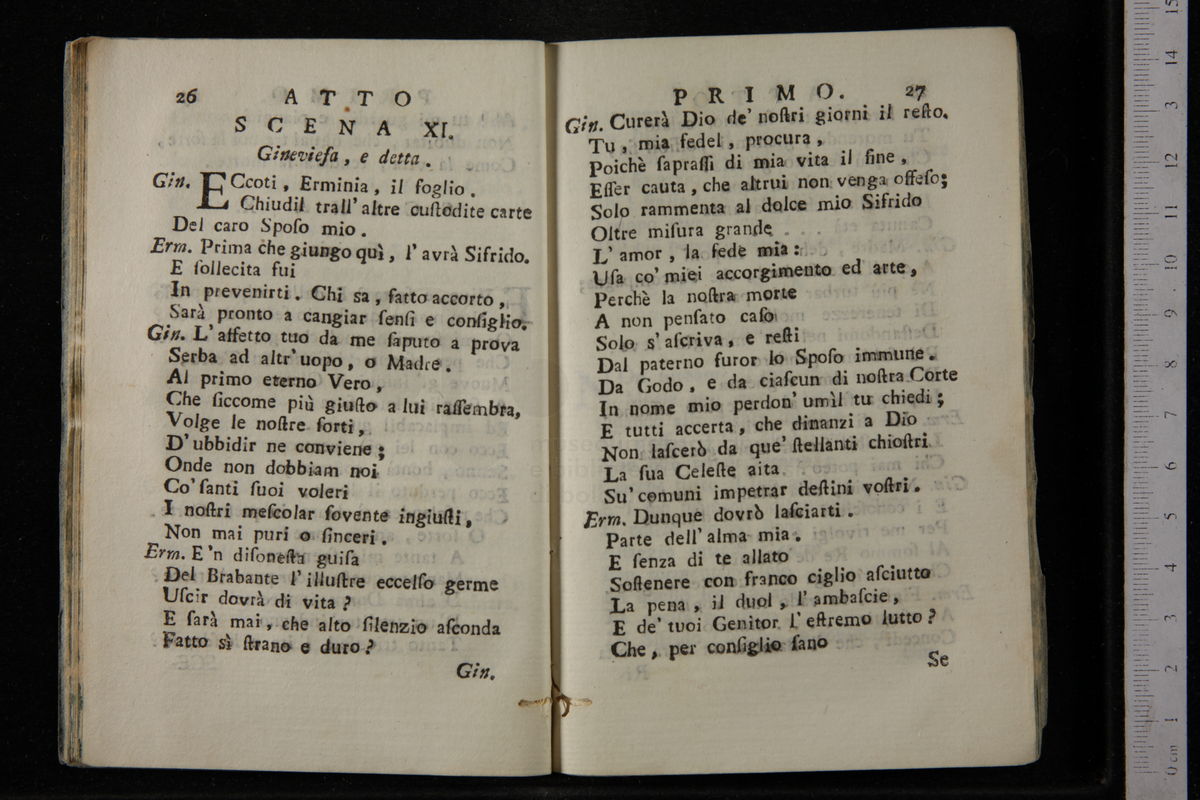 26 ATTO
SCENA XI.
Gineviefa, e detta.
Gin. ECcoti, Erminia, il foglio.
Chiudil trall' altre cuſtodite carte
Del caro Spoſo mio.
Erm. Prima che giungo quì, l' avrà Sifrido.
E ſollecita fui
In prevenirti. Chi sa, fatto accorto,
Sarà pronto a cangiar ſenſi e conſiglio.
Gin. L' affetto tuo da me ſaputo a prova
Serba ad altr' uopo, o Madre.
Al primo eterno Vero,
Che ſiccome più giuſto a lui raſſembra,
Volge le noſtre ſorti,
D' ubbidir ne conviene;
Onde non dobbiam noi
Co' ſanti ſuoi voleri
I noſtri meſcolar ſovente ingiuſti,
Non mai puri o ſinceri.
Erm. E 'n diſoneſta guiſa
Del Brabante l' illuſtre eccelſo germe
Uſcir dovrà di vita?
E ſarà mai, che alto ſilenzio aſconda
Fatto sì ſtrano e duro?
Gin.
PRIMO. 27
Gin. Curerà Dio de' noſtri giorni il reſto.
Tu, mia fedel, procura,
Poichè ſapraſſi di mia vita il fine,
Eſſer cauta, che altrui non venga offeſo;
Solo rammenta al dolce mio Sifrido
Oltre miſura grande
L' amor, la fede mia:
Uſa co' miei accorgimento ed arte,
Perchè la noſtra morte
A non penſato caſo
Solo s' aſcriva, e reſti
Dal paterno furor lo Spoſo immune.
Da Godo, e da ciaſcun di noſtra Corte
In nome mio perdon' umìl tu chiedi;
E tutti accerta, che dinanzi a Dio
Non laſcerò da que' ſtellanti chioſtri
La ſua Celeſte aita
Su' comuni impetrar deſtini voſtri.
Erm. Dunque dovrò laſciarti.
Parte dell' alma mia.
E ſenza di te allato
Soſtenere con franco ciglio aſciutto
La pena, il duol, l' ambaſcie,
E de' tuoi Genitor l' eſtremo lutto?
Che, per conſiglio ſano
Se
0 cm 1 2 3 4 5 6 7 8 9 10 11 12 13 14 15